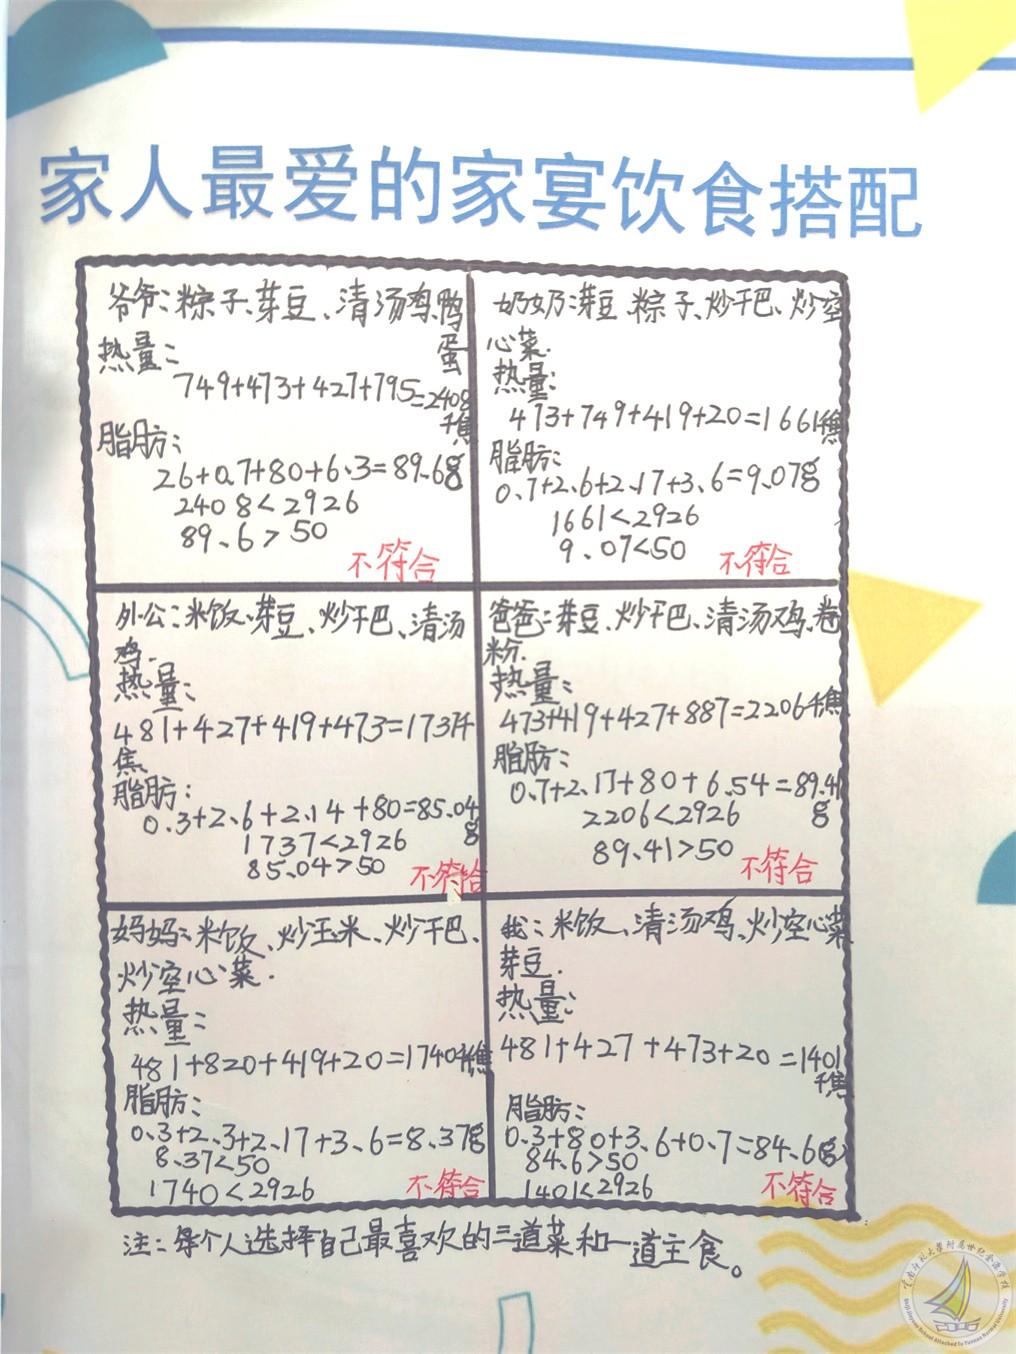 家人最爱的家宴饮食搭配
爷爷:粽子、芽豆、清汤鸡、鸭
蛋
热量:
749+473+427+795=2408
千焦
脂肪:
26+0.7+80+6.3=89.6g
2408<2926
89.6>50
不符合
奶奶:芽豆、粽子、炒干巴、炒空
心菜.
热量:
473+749+419+20=1661千焦
脂肪:
0.7+2.6+2.17+3.6=9.07g
1661<2926
9.07<50
不符合
外公:米饭、芽豆、炒干巴、清汤
鸡.
热量:
481+427+419+473=1737千
焦
脂肪:
0.3+2.6+2.14+80=85.04
g
1737<2926
85.04>50
不符合
爸爸:芽豆、炒干巴、清汤鸡、卷
粉.
热量:
473+419+427+887=2206千焦
脂肪:
0.7+2.17+80+6.54=89.41
g
2206<2926
89.41>50
不符合
妈妈:米饭、炒玉米、炒干巴、
炒空心菜.
热量:
481+820+419+20=1740千焦
脂肪:
0.3+2.3+2.17+3.6=8.37g
8.37<50
1740<2926
不符合
我:米饭、清汤鸡、炒空心菜
芽豆.
热量:
481+427+473+20=1401
千焦
脂肪:
0.3+80+3.6+0.7=84.6g
84.6>50
1401<2926
不符合
注:每个人选择自己最喜欢的三道菜和一道主食。
云南师范大學附属世纪金源学校